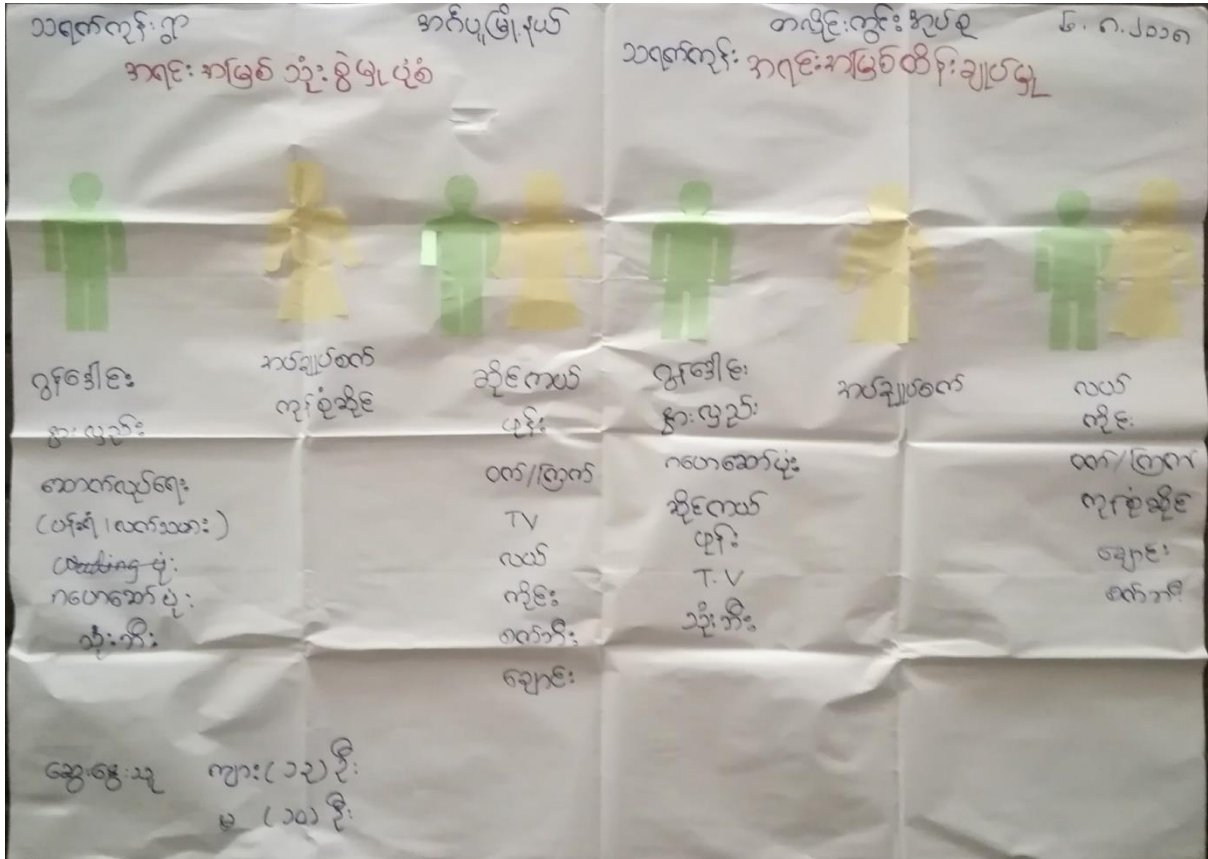 သရက်ကုန်းရွာ
အင်္ဂပူမြို့နယ်
တလိုင်းကွင်းအုပ်စု
၆.၈.၂၀၁၈
အရင်းအမြစ် သုံးစွဲမှု ပုံစံ
သရက်ကုန်း အရင်းအမြစ်ထိန်းချုပ်မှု
ထွန်ဒေါင်း
နွားလှည်း
ဆောက်လုပ်ရေး
(ပန်းရံ၊ လက်သမား)
ဂဟေဆော်ပုံး
သုံးဘီး
အပ်ချုပ်စက်
ကုန်စုံဆိုင်
ဆိုင်ကယ်
ဖုန်း
ဝက်/ကြက်
TV
လယ်
ကိုင်း
စက်ဘီး
ချောင်း
ထွန်ဒေါင်း
နွားလှည်း
ဂဟေဆော်ပုံး
ဆိုင်ကယ်
ဖုန်း
T.V
သုံးဘီး
အပ်ချုပ်စက်
လယ်
ကိုင်း
ဝက်/ကြက်
ကုန်စုံဆိုင်
ချောင်း
စက်ဘီး
ဆွေးနွေးသူ ကျား (၁၃) ဦး
မ (၁၀) ဦး